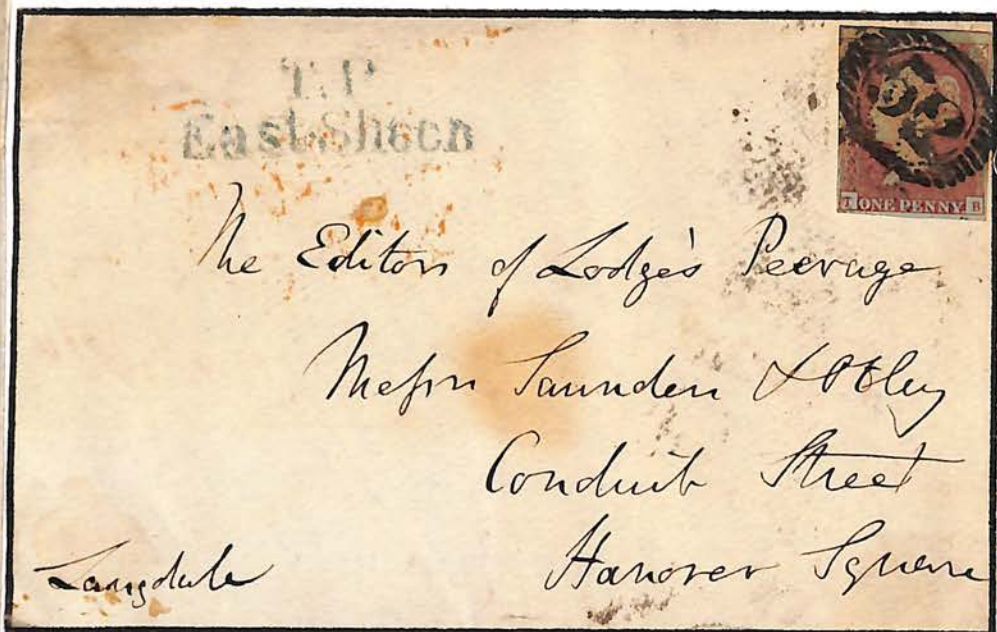 T.P
East Sheen
ONE PENNY
B
The Editors of Lodge's Peerage
Messrs Saunders & Otley
Conduit Street
Hanover Square
Langdale